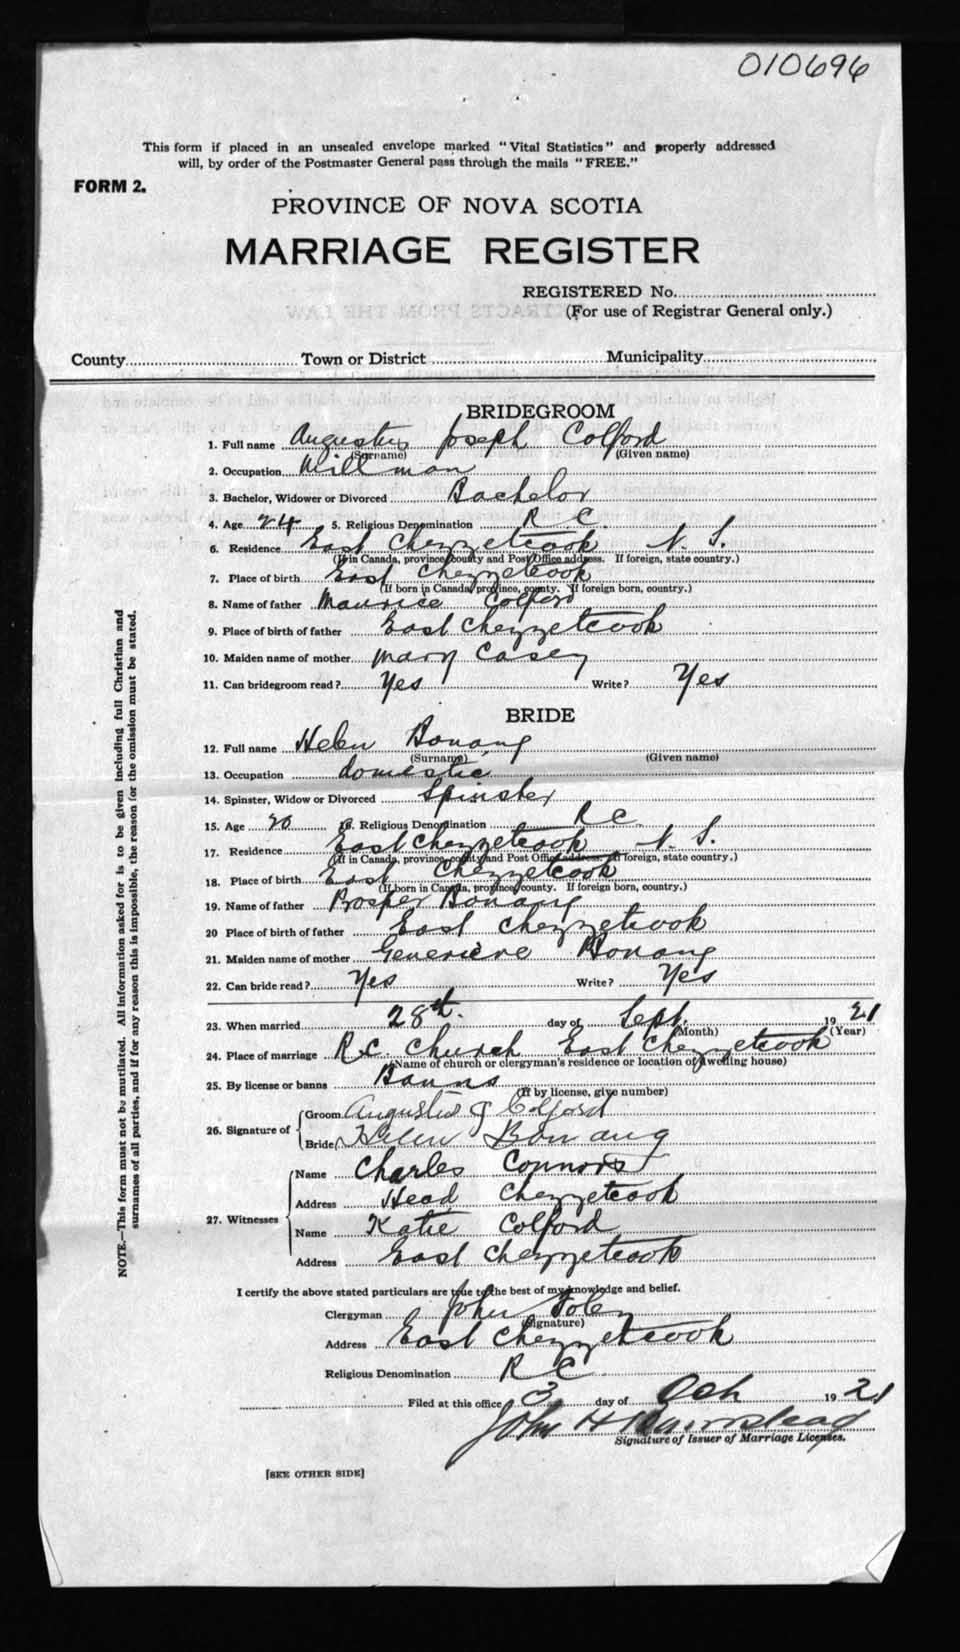 010696
This form if placed in an unsealed envelope marked "Vital Statistics" and properly addressed
will, by order of the Postmaster General pass through the mails "FREE."
FORM 2.
PROVINCE OF NOVA SCOTIA
MARRIAGE REGISTER
REGISTERED No.
(For use of Registrar General only.)
County Town or District Municipality
BRIDEGROOM
1. Full name Augustus Joseph Colford
(Surname) (Given name)
2. Occupation Millman
3. Bachelor, Widower or Divorced Bachelor
4. Age 24 5. Religious Denomination R C.
6. Residence East Chezzetcook N. S.
(If in Canada, province, county and Post Office address. If foreign, state country.)
7. Place of birth East Chezzetcook
(If born in Canada, province, county. If foreign born, country.)
8. Name of father Maurice Colford
9. Place of birth of father East Chezzetcook
10. Maiden name of mother Mary Casey
11. Can bridegroom read? Yes Write? Yes
BRIDE
12. Full name Helen Bonang
(Surname) (Given name)
13. Occupation domestic
14. Spinster, Widow or Divorced Spinster
15. Age 20 16. Religious Denomination R C.
17. Residence East Chezzetcook N. S.
(If in Canada, province, county and Post Office address. If foreign, state country.)
18. Place of birth East Chezzetcook
(If born in Canada, province, county. If foreign born, country.)
19. Name of father Prosper Bonang
20 Place of birth of father East Chezzetcook
21. Maiden name of mother Genevieve Bonang
22. Can bride read? Yes Write? Yes
23. When married 28th. day of Sept. 19 21
(Month) (Year)
24. Place of marriage R.C Church East Chezzetcook
(Name of church or clergyman's residence or location of dwelling house)
25. By license or banns Banns
(If by license, give number)
26. Signature of Groom Augustus J Colford
Bride Helen Bonang
27. Witnesses Name Charles Connors
Address Head Chezzetcook
Name Katie Colford
Address East Chezzetcook
I certify the above stated particulars are true to the best of my knowledge and belief.
Clergyman John Foley
(Signature)
Address East Chezzetcook
Religious Denomination R C.
Filed at this office 3 day of Oct 19 21
John H
Signature of Issuer of Marriage Licenses.
[SEE OTHER SIDE]
NOTE.—This form must not be mutilated. All information asked for is to be given including full Christian and
surnames of all parties, and if for any reason this is impossible, the reason for the omission must be stated.